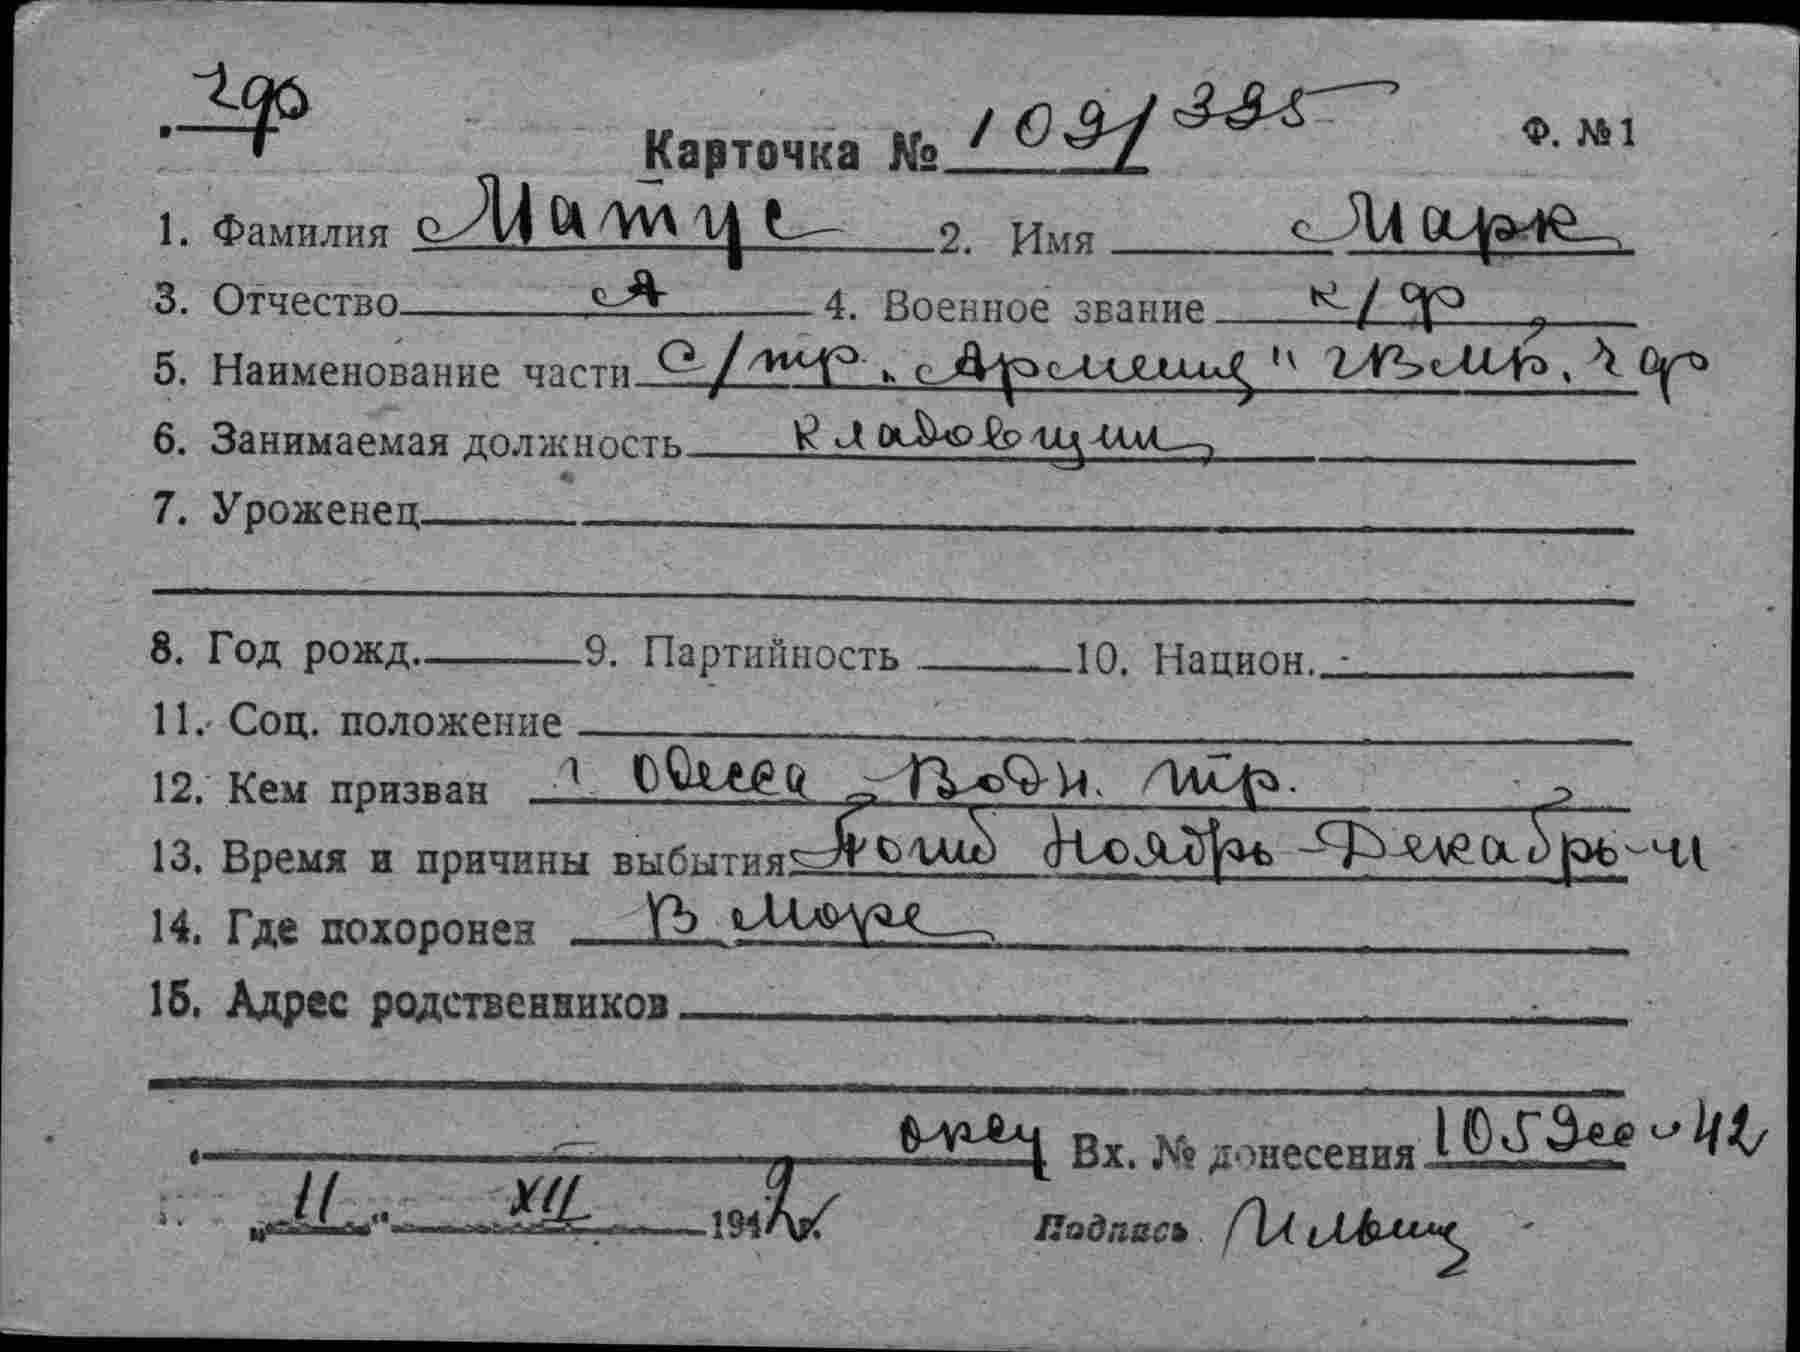 чф
Карточка № 109/395 Ф. №1
1. Фамилия Матус 2. Имя Марк
3. Отчество А 4. Военное звание к/ф
5. Наименование части с/тр. "Армения" чф
6. Занимаемая должность кладовщик
7. Уроженец
8. Год рожд. 9. Партийность 10. Национ.
11. Соц. положение
12. Кем призван г Одесса Водн. тр.
13. Время и причины выбытия Погиб Ноябрь-Декабрь-41
14. Где похоронен в море
15. Адрес родственников
Вх. № донесения 1059сс-42
„11" XII 1942г.
Подпись